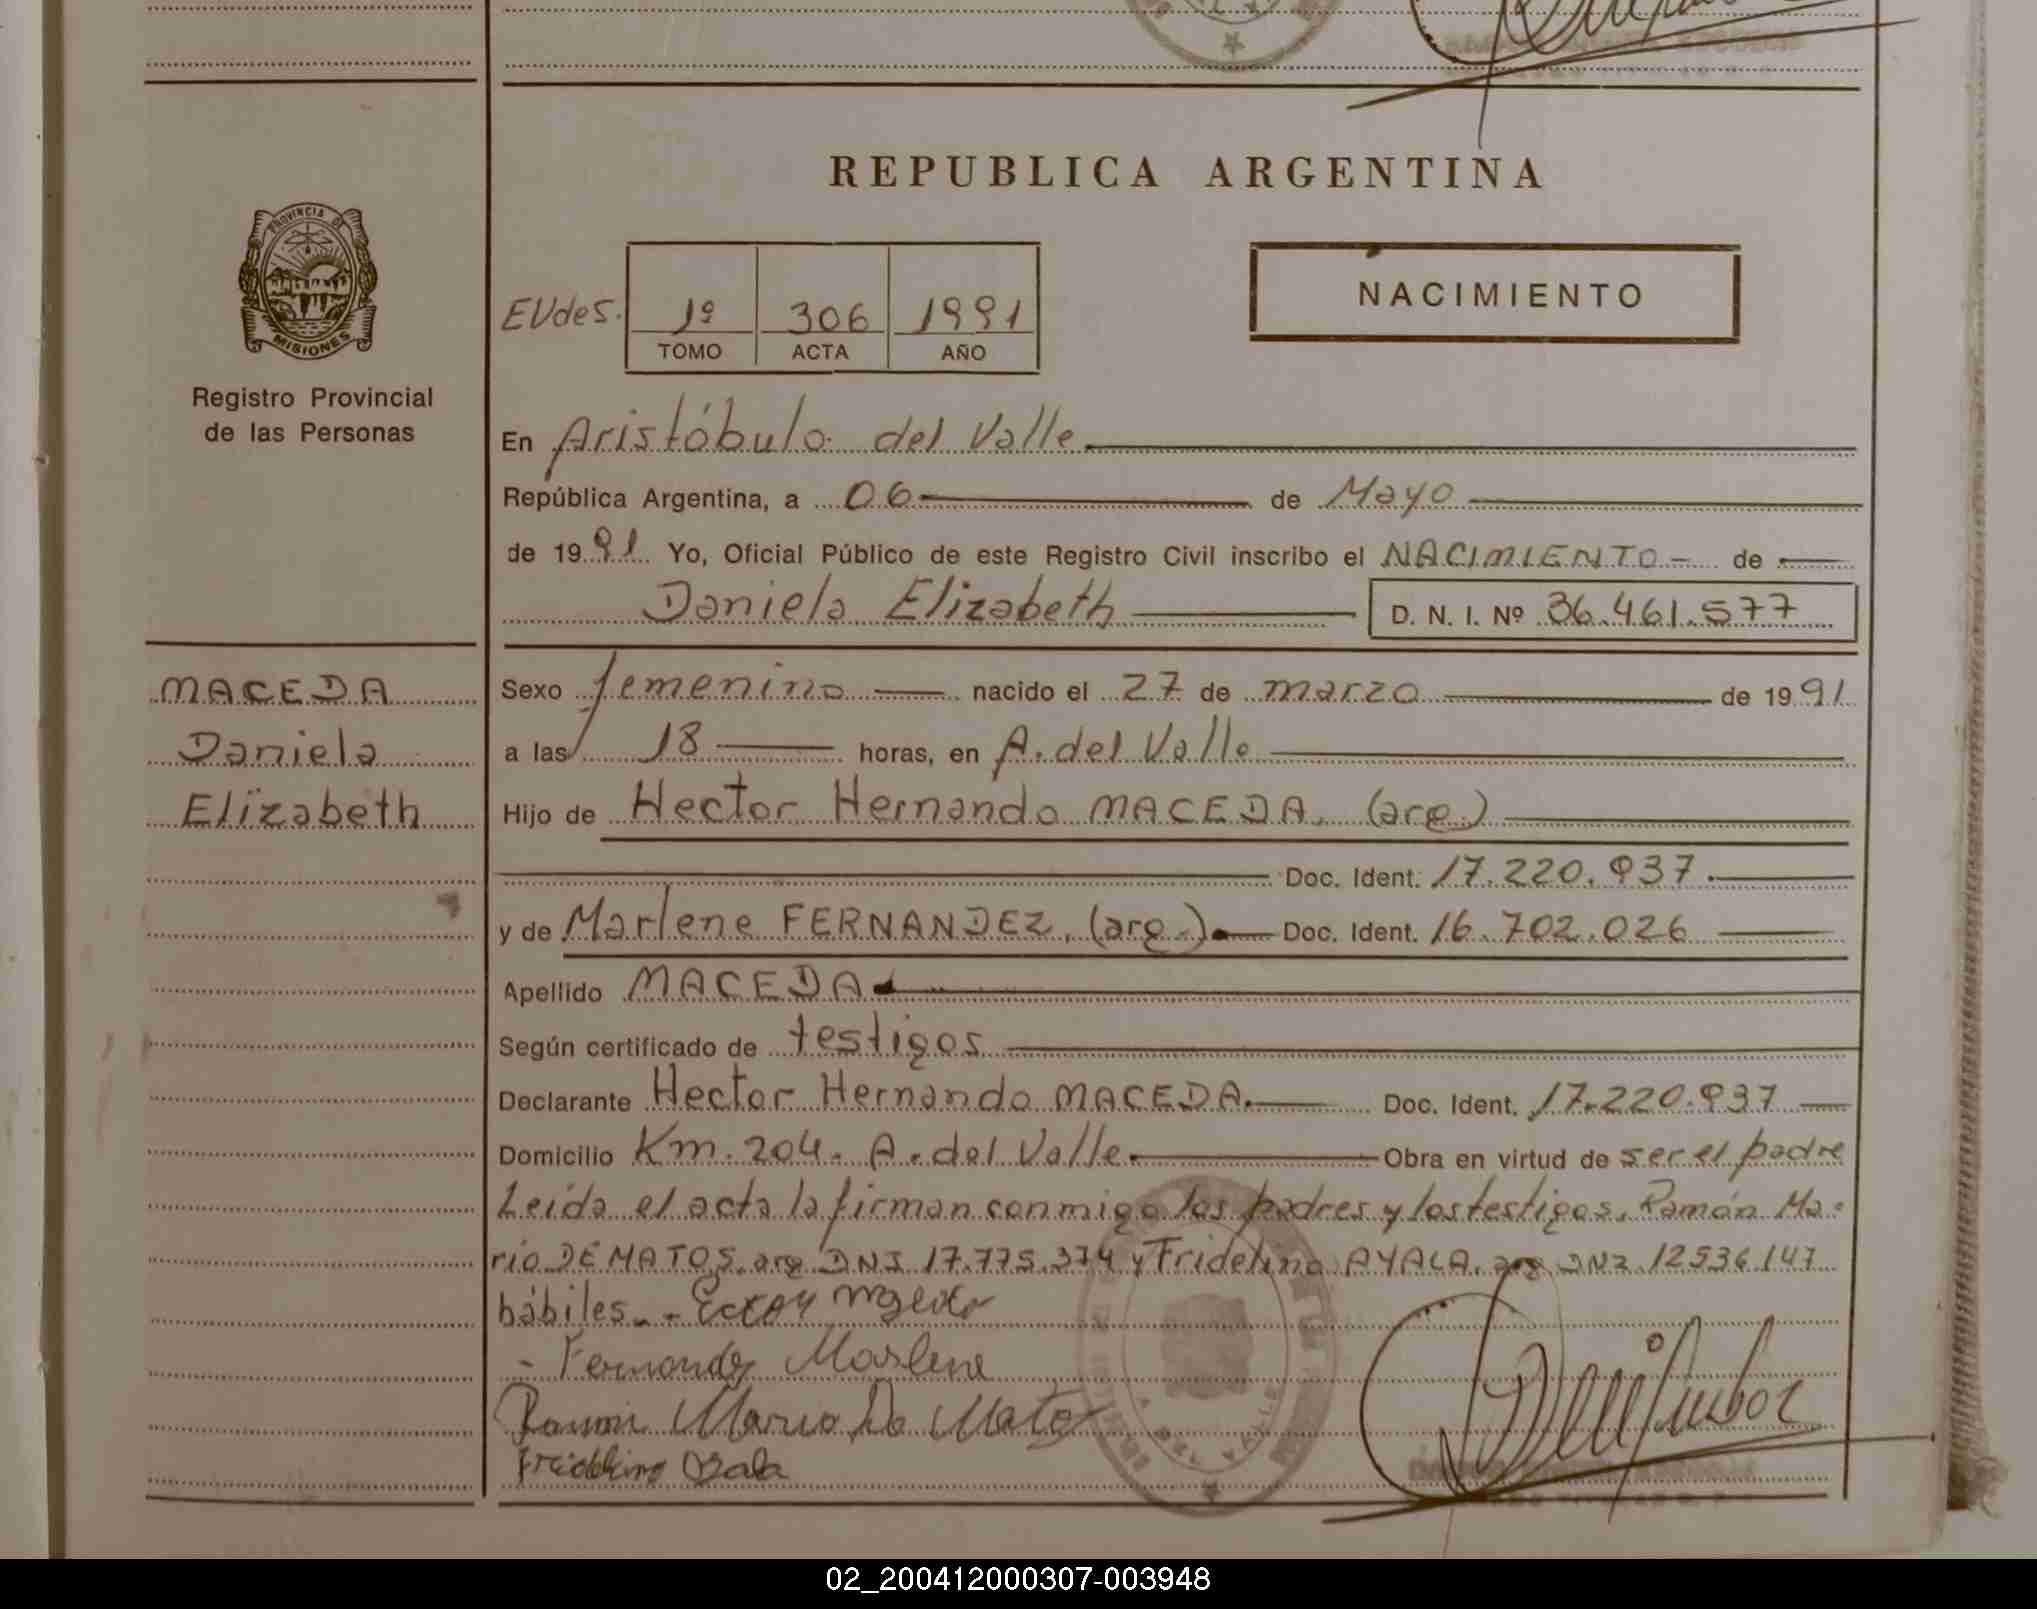 REPUBLICA ARGENTINA
PROVINCIA DE
MISIONES
Registro Provincial
de las Personas
EVdes. 1º 306 1991
TOMO ACTA AÑO
NACIMIENTO
En Aristóbulo del Valle
República Argentina, a 06 de Mayo
de 1991 Yo, Oficial Público de este Registro Civil inscribo el NACIMIENTO - de
Daniela Elizabeth D. N. I. Nº 36.461.577
MACEDA
Daniela
Elizabeth
Sexo femenino nacido el 27 de marzo de 1991
a las 18 horas, en A. del Valle
Hijo de Hector Hernando MACEDA. (arg.)
Doc. Ident. 17.220.937.
y de Marlene FERNANDEZ. (arg.). Doc. Ident. 16.702.026
Apellido MACEDA
Según certificado de testigos
Declarante Hector Hernando MACEDA. Doc. Ident. 17.220.937
Domicilio Km. 204. A. del Valle. Obra en virtud de ser el padre
Leída el acta la firman conmigo los padres y los testigos. Ramón Ma-
rio DE MATOS. arg DNI 17.775.374 y Fridelino AYALA. arg DNI. 12536147
hábiles. -
- Fernandez Marlene
Ramon Mario De Mato
02_200412000307-003948